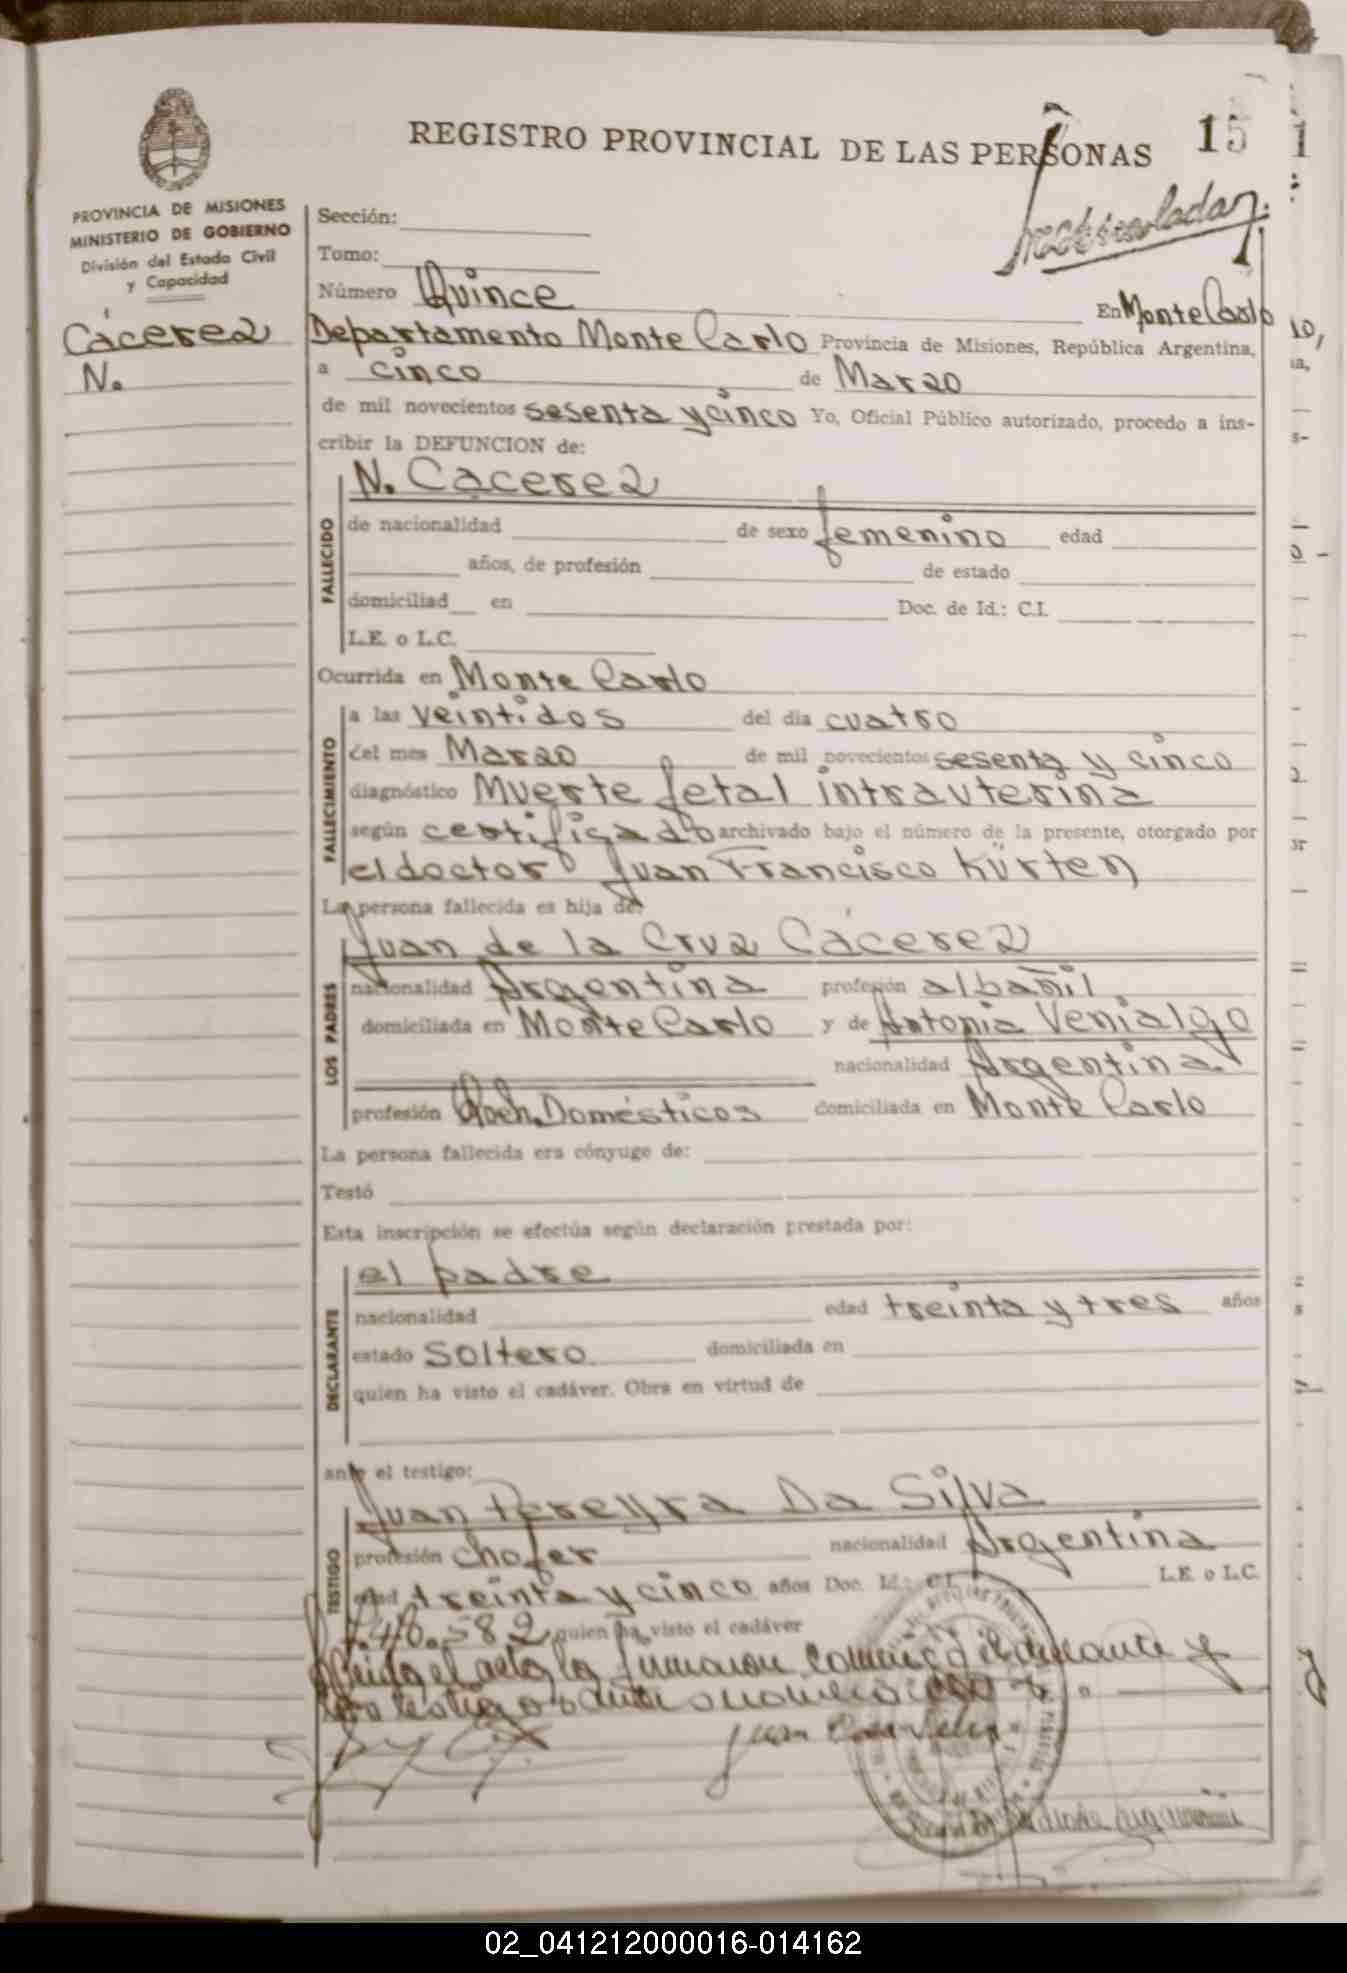 REGISTRO PROVINCIAL DE LAS PERSONAS 15
PROVINCIA DE MISIONES
MINISTERIO DE GOBIERNO
División del Estado Civil
y Capacidad
Cácerez
N.
Sección:
Tomo:
Número Quince
En Monte Carlo
Departamento Monte Carlo Provincia de Misiones, República Argentina,
a cinco de Marzo
de mil novecientos sesenta y cinco Yo, Oficial Público autorizado, procedo a ins-
cribir la DEFUNCION de:
FALLECIDO
N. Cacerez
de nacionalidad de sexo femenino edad
años, de profesión de estado
domiciliad en Doc. de Id.: C.I.
L.E. o L.C.
Ocurrida en Monte Carlo
FALLECIMIENTO
a las veintidos del día cuatro
del mes Marzo de mil novecientos sesenta y cinco
diagnóstico Muerte fetal intrauterina
según certificado archivado bajo el número de la presente, otorgado por
el doctor Juan Francisco Kürten
La persona fallecida es hija de:
LOS PADRES
Juan de la Cruz Cácerez
nacionalidad Argentina profesión albañil
domiciliada en Monte Carlo y de Antonia Venialgo
nacionalidad Argentina
profesión Domésticos domiciliada en Monte Carlo
La persona fallecida era cónyuge de:
Testó
Esta inscripción se efectúa según declaración prestada por:
DECLARANTE
el padre
nacionalidad edad treinta y tres años
estado Soltero domiciliada en
quien ha visto el cadáver. Obra en virtud de
ante el testigo:
TESTIGO
Juan Pereyra Da Silva
profesión chofer nacionalidad Argentina
edad treinta y cinco años Doc. Id.: C.I. L.E. o L.C.
quien ha visto el cadáver
el acta la firmaron conmigo el declarante y
02_041212000016-014162